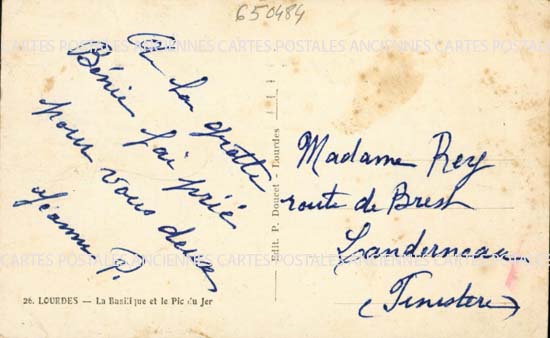 650484
CARTES POSTALES ANCIENNES CARTES POSTALES ANCIENNES CARTES POSTALES
A la grotte
Bénie j'ai prié
pour vous deux
Jeanne P.
Edit. P. Doucet - Lourdes
Madame Rey
route de Brest
Landerneau
(Finistère)
26. LOURDES — La Basilique et le Pic du Jer